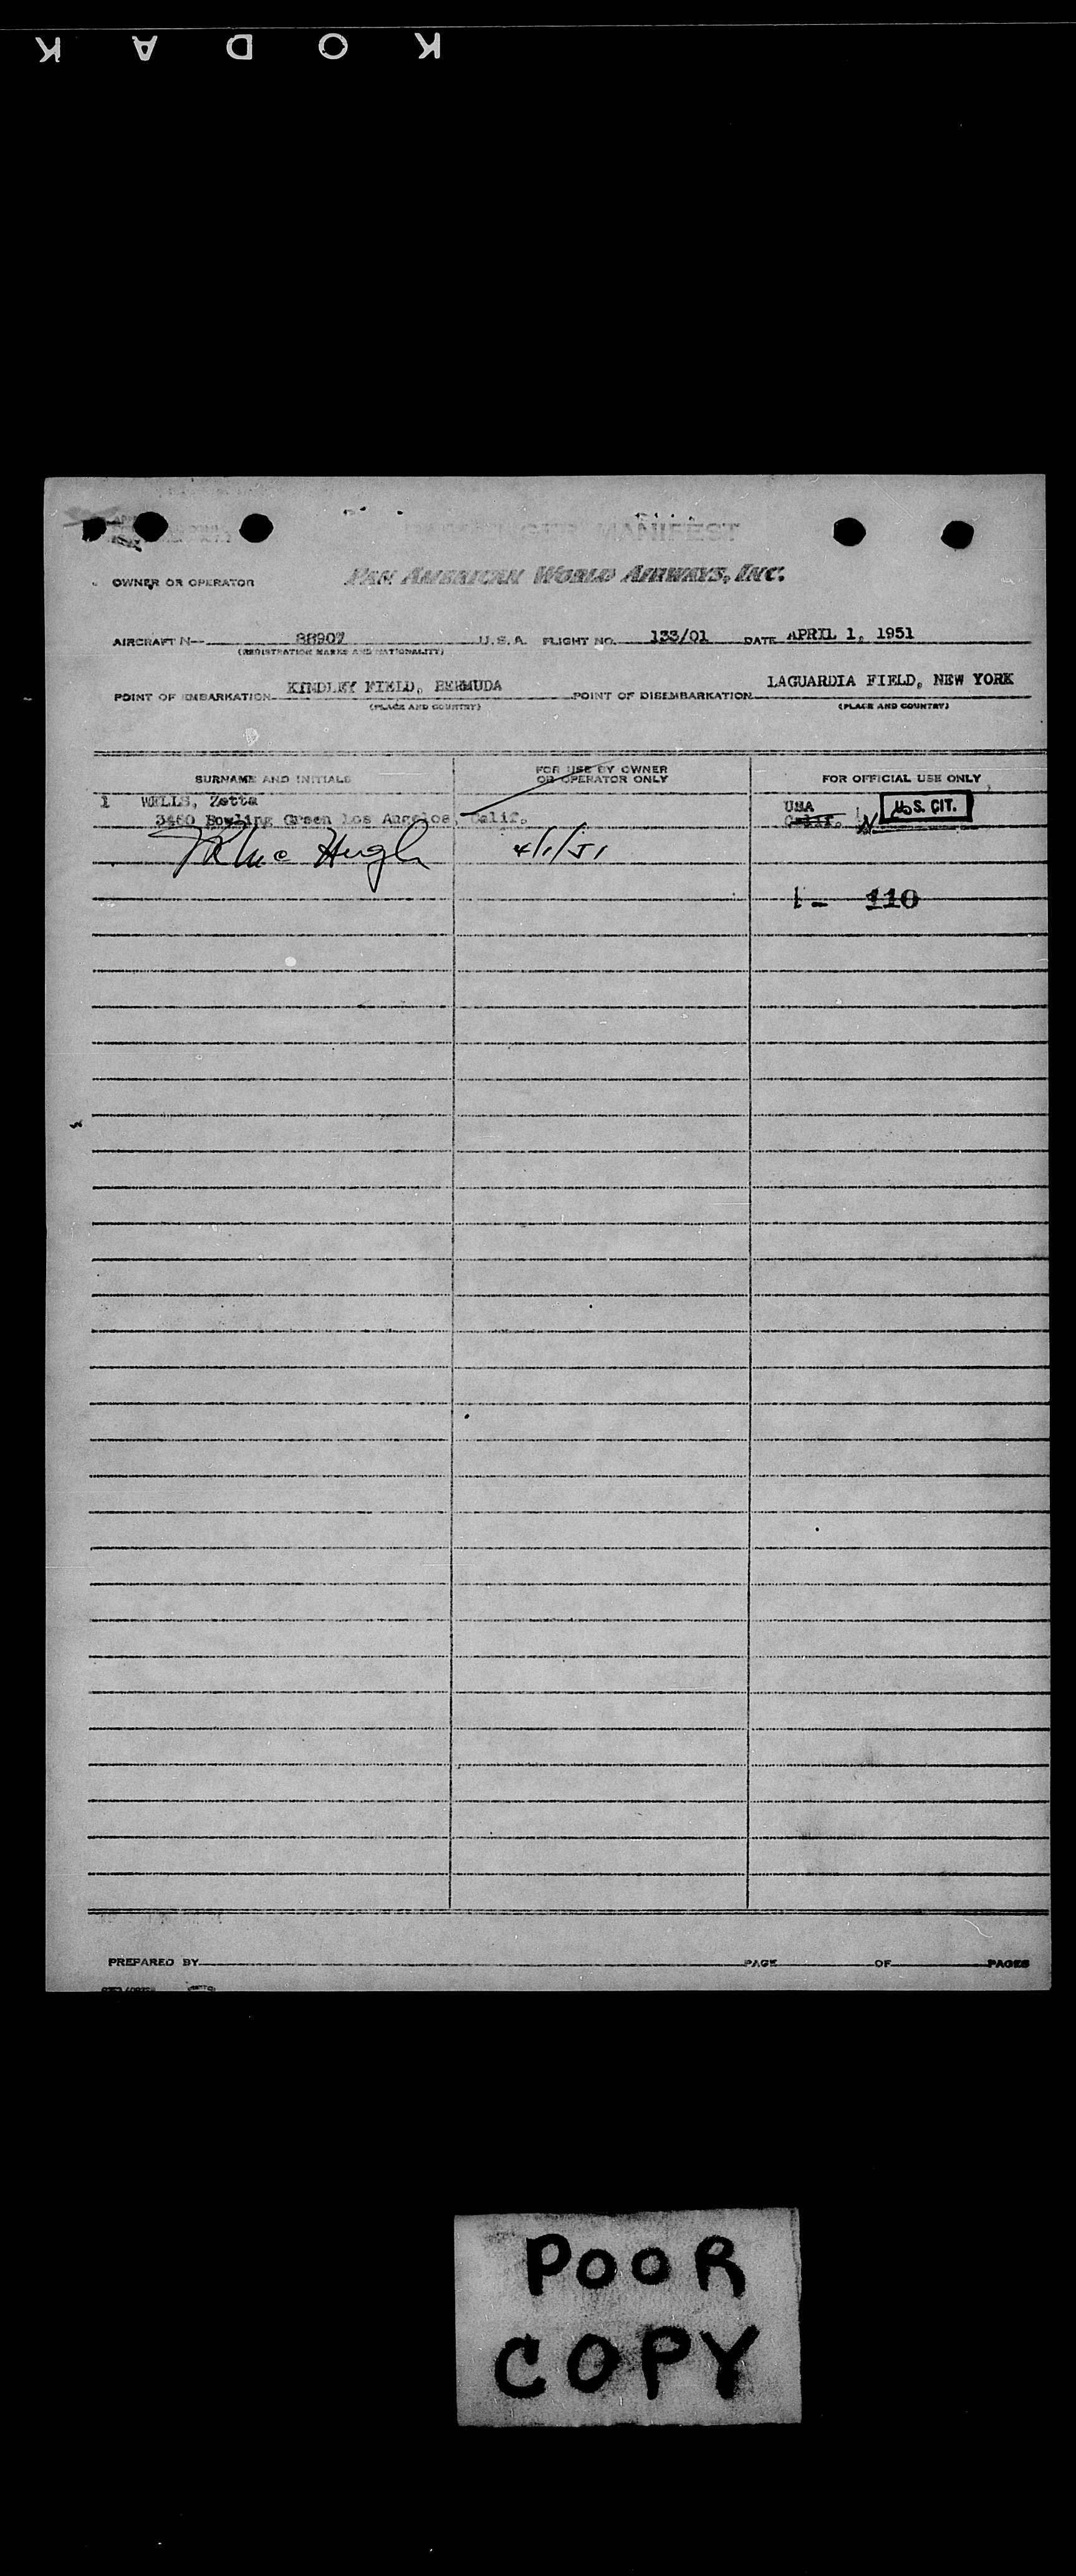 KODAK
MANIFEST
OWNER OR OPERATOR PAN AMERICAN WORLD AIRWAYS, INC.
AIRCRAFT N- 88907 U.S.A. FLIGHT NO. 133/01 DATE APRIL 1, 1951
(REGISTRATION MARKS AND NATIONALITY)
POINT OF EMBARKATION KINDLEY FIELD, BERMUDA POINT OF DISEMBARKATION LAGUARDIA FIELD, NEW YORK
(PLACE AND COUNTRY) (PLACE AND COUNTRY)
SURNAME AND INITIALS FOR USE BY OWNER OR OPERATOR ONLY FOR OFFICIAL USE ONLY
1 WELLS, Zetta USA U.S. CIT.
3460 Bowling Green Los Angeles, Calif. Calif. N
Hugh 4/1/51
1- 110
PREPARED BY PAGE OF PAGES
POOR
COPY